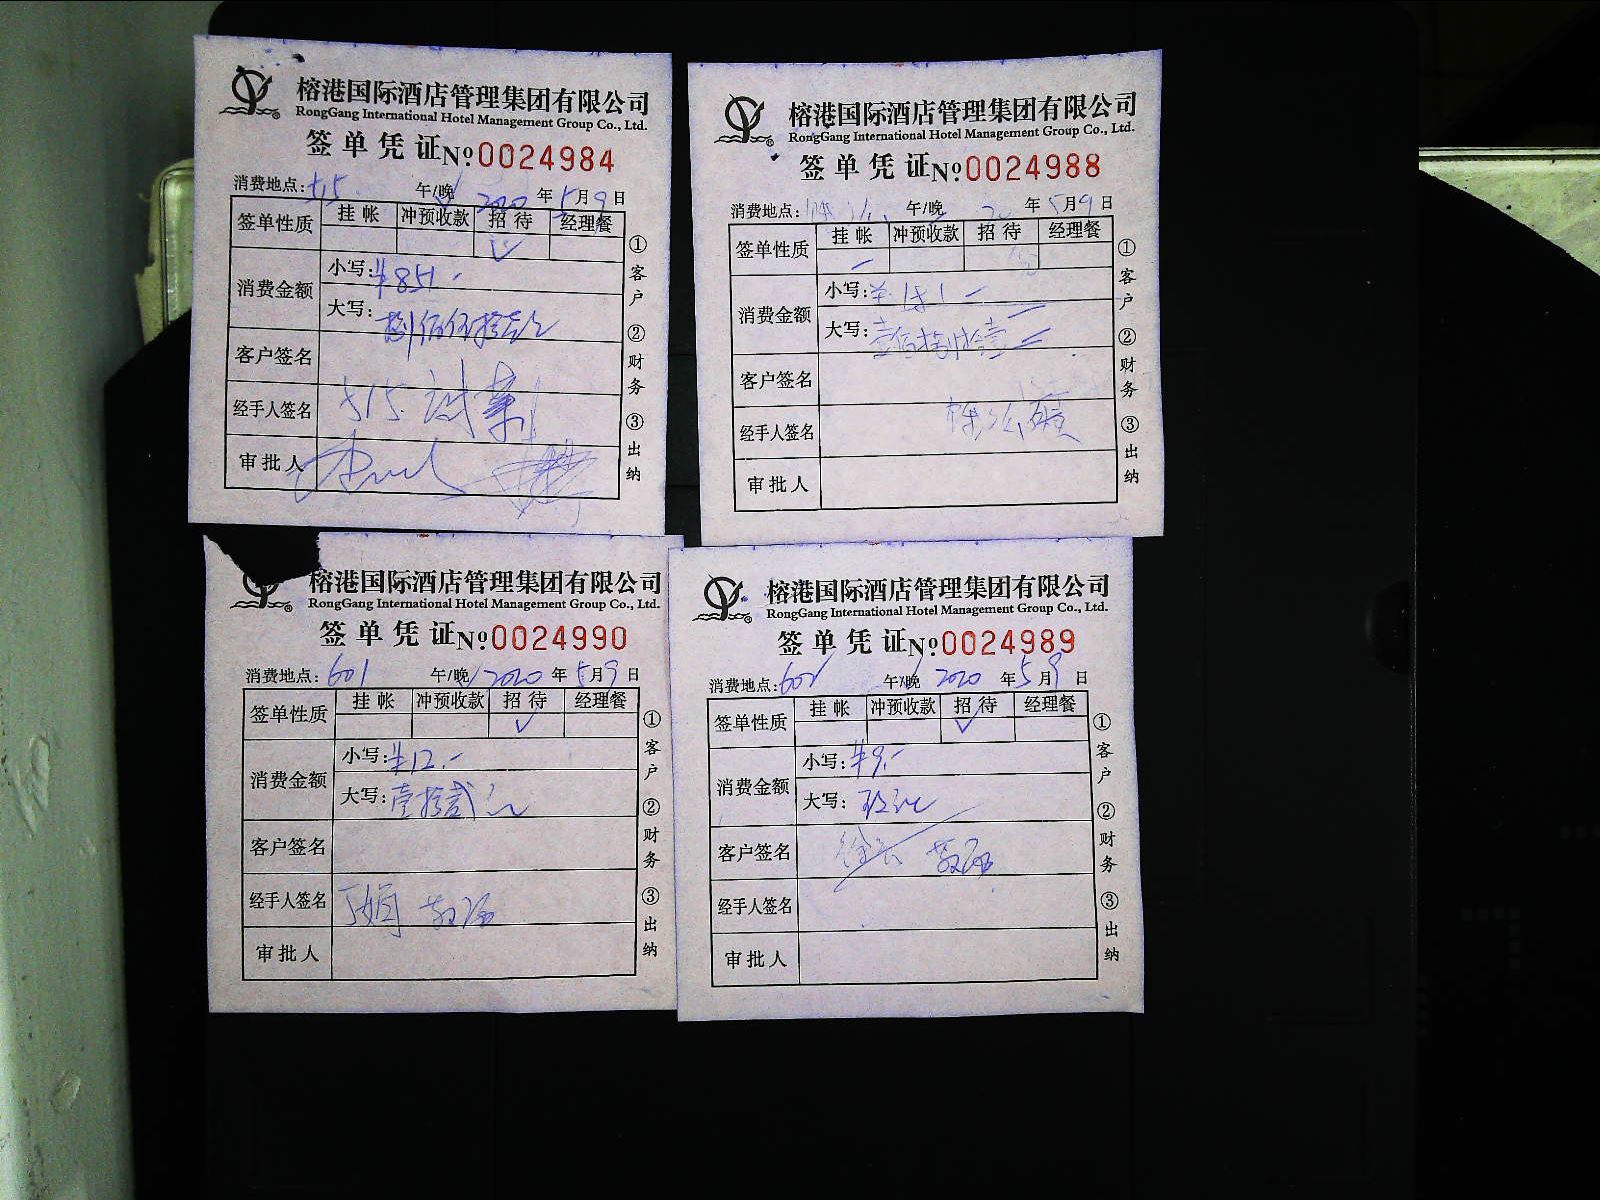 榕港国际酒店管理集团有限公司
RongGang International Hotel Management Group Co., Ltd.
签单凭证№0024984
消费地点:515 午/晚 2020年5月9日
签单性质 挂帐 冲预收款 招待 经理餐
消费金额 小写:¥851.-
大写:捌佰伍拾壹元
客户签名
经手人签名 515 试菜
审批人
①客户 ②财务 ③出纳
榕港国际酒店管理集团有限公司
RongGang International Hotel Management Group Co., Ltd.
签单凭证№0024988
消费地点: 午/晚 年5月9日
签单性质 挂帐 冲预收款 招待 经理餐
消费金额 小写:¥181-
大写:壹佰捌拾壹
客户签名
经手人签名
审批人
①客户 ②财务 ③出纳
榕港国际酒店管理集团有限公司
RongGang International Hotel Management Group Co., Ltd.
签单凭证№0024990
消费地点:601 午/晚 2020年5月9日
签单性质 挂帐 冲预收款 招待 经理餐
消费金额 小写:¥12.-
大写:壹拾贰元
客户签名
经手人签名
审批人
①客户 ②财务 ③出纳
榕港国际酒店管理集团有限公司
RongGang International Hotel Management Group Co., Ltd.
签单凭证№0024989
消费地点:601 午/晚 2020年5月9日
签单性质 挂帐 冲预收款 招待 经理餐
消费金额 小写:¥9.-
大写:玖元
客户签名
经手人签名
审批人
①客户 ②财务 ③出纳